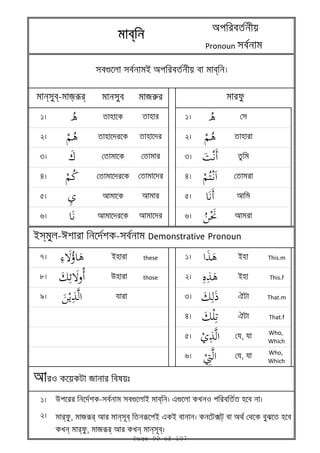 মাব্‌নি
অপরিবর্তনীয়
Pronoun সর্বনাম
সবগুলো সর্বনামই অপরিবর্তনীয় বা মাব্‌নি।
মান্‌সুব্‌-মাজ্‌রূর্‌ মানসুব মাজরুর মারফু
১। هُ তাহাকে তাহার ১। هُ সে
২। هُمْ তাহাদেরকে তাহাদের ২। هُمْ তাহারা
৩। كَ তোমাকে তোমার ৩। أَنْتَ তুমি
৪। كُمْ তোমাদেরকে তোমাদের ৪। أَنْتُمْ তোমরা
৫। يْ আমাকে আমার ৫। أَنَا আমি
৬। نَا আমাদেরকে আমাদের ৬। نَحْنُ আমরা
ইস্‌মুল-ঈশারা নির্দেশক-সর্বনাম Demonstrative Pronoun
৭। هَؤُلَاءِ ইহারা these ১। هَذَا ইহা This.m
৮। أُولَئِكَ উহারা those ২। هَذِهِ ইহা This.f
৯। الَّذِيْنَ যারা ৩। ذَلِكَ ঐটা That.m
৪। تِلْكَ ঐটা That.f
৫। الَّذِيْ যে, যা Who, Which
৬। الَّتِيْ যে, যা Who, Which
আরও কয়েকটা জানার বিষয়ঃ
১। উপরের নির্দেশক-সর্বনাম সবগুলোই মাব্‌নি। এগুলো কখনও পরিবর্তিত হবে না।
২। মার্‌ফু, মাজরূর্‌ আর মান্‌সুব্‌ তিনরূপেই একই বানান। কনটেক্সট্‌ বা অর্থ থেকে বুঝতে হবে
কখন্‌ মার্‌ফু, মাজরূর্‌ আর কখন্‌ মান্‌সুব্‌।
Page 99 of 107